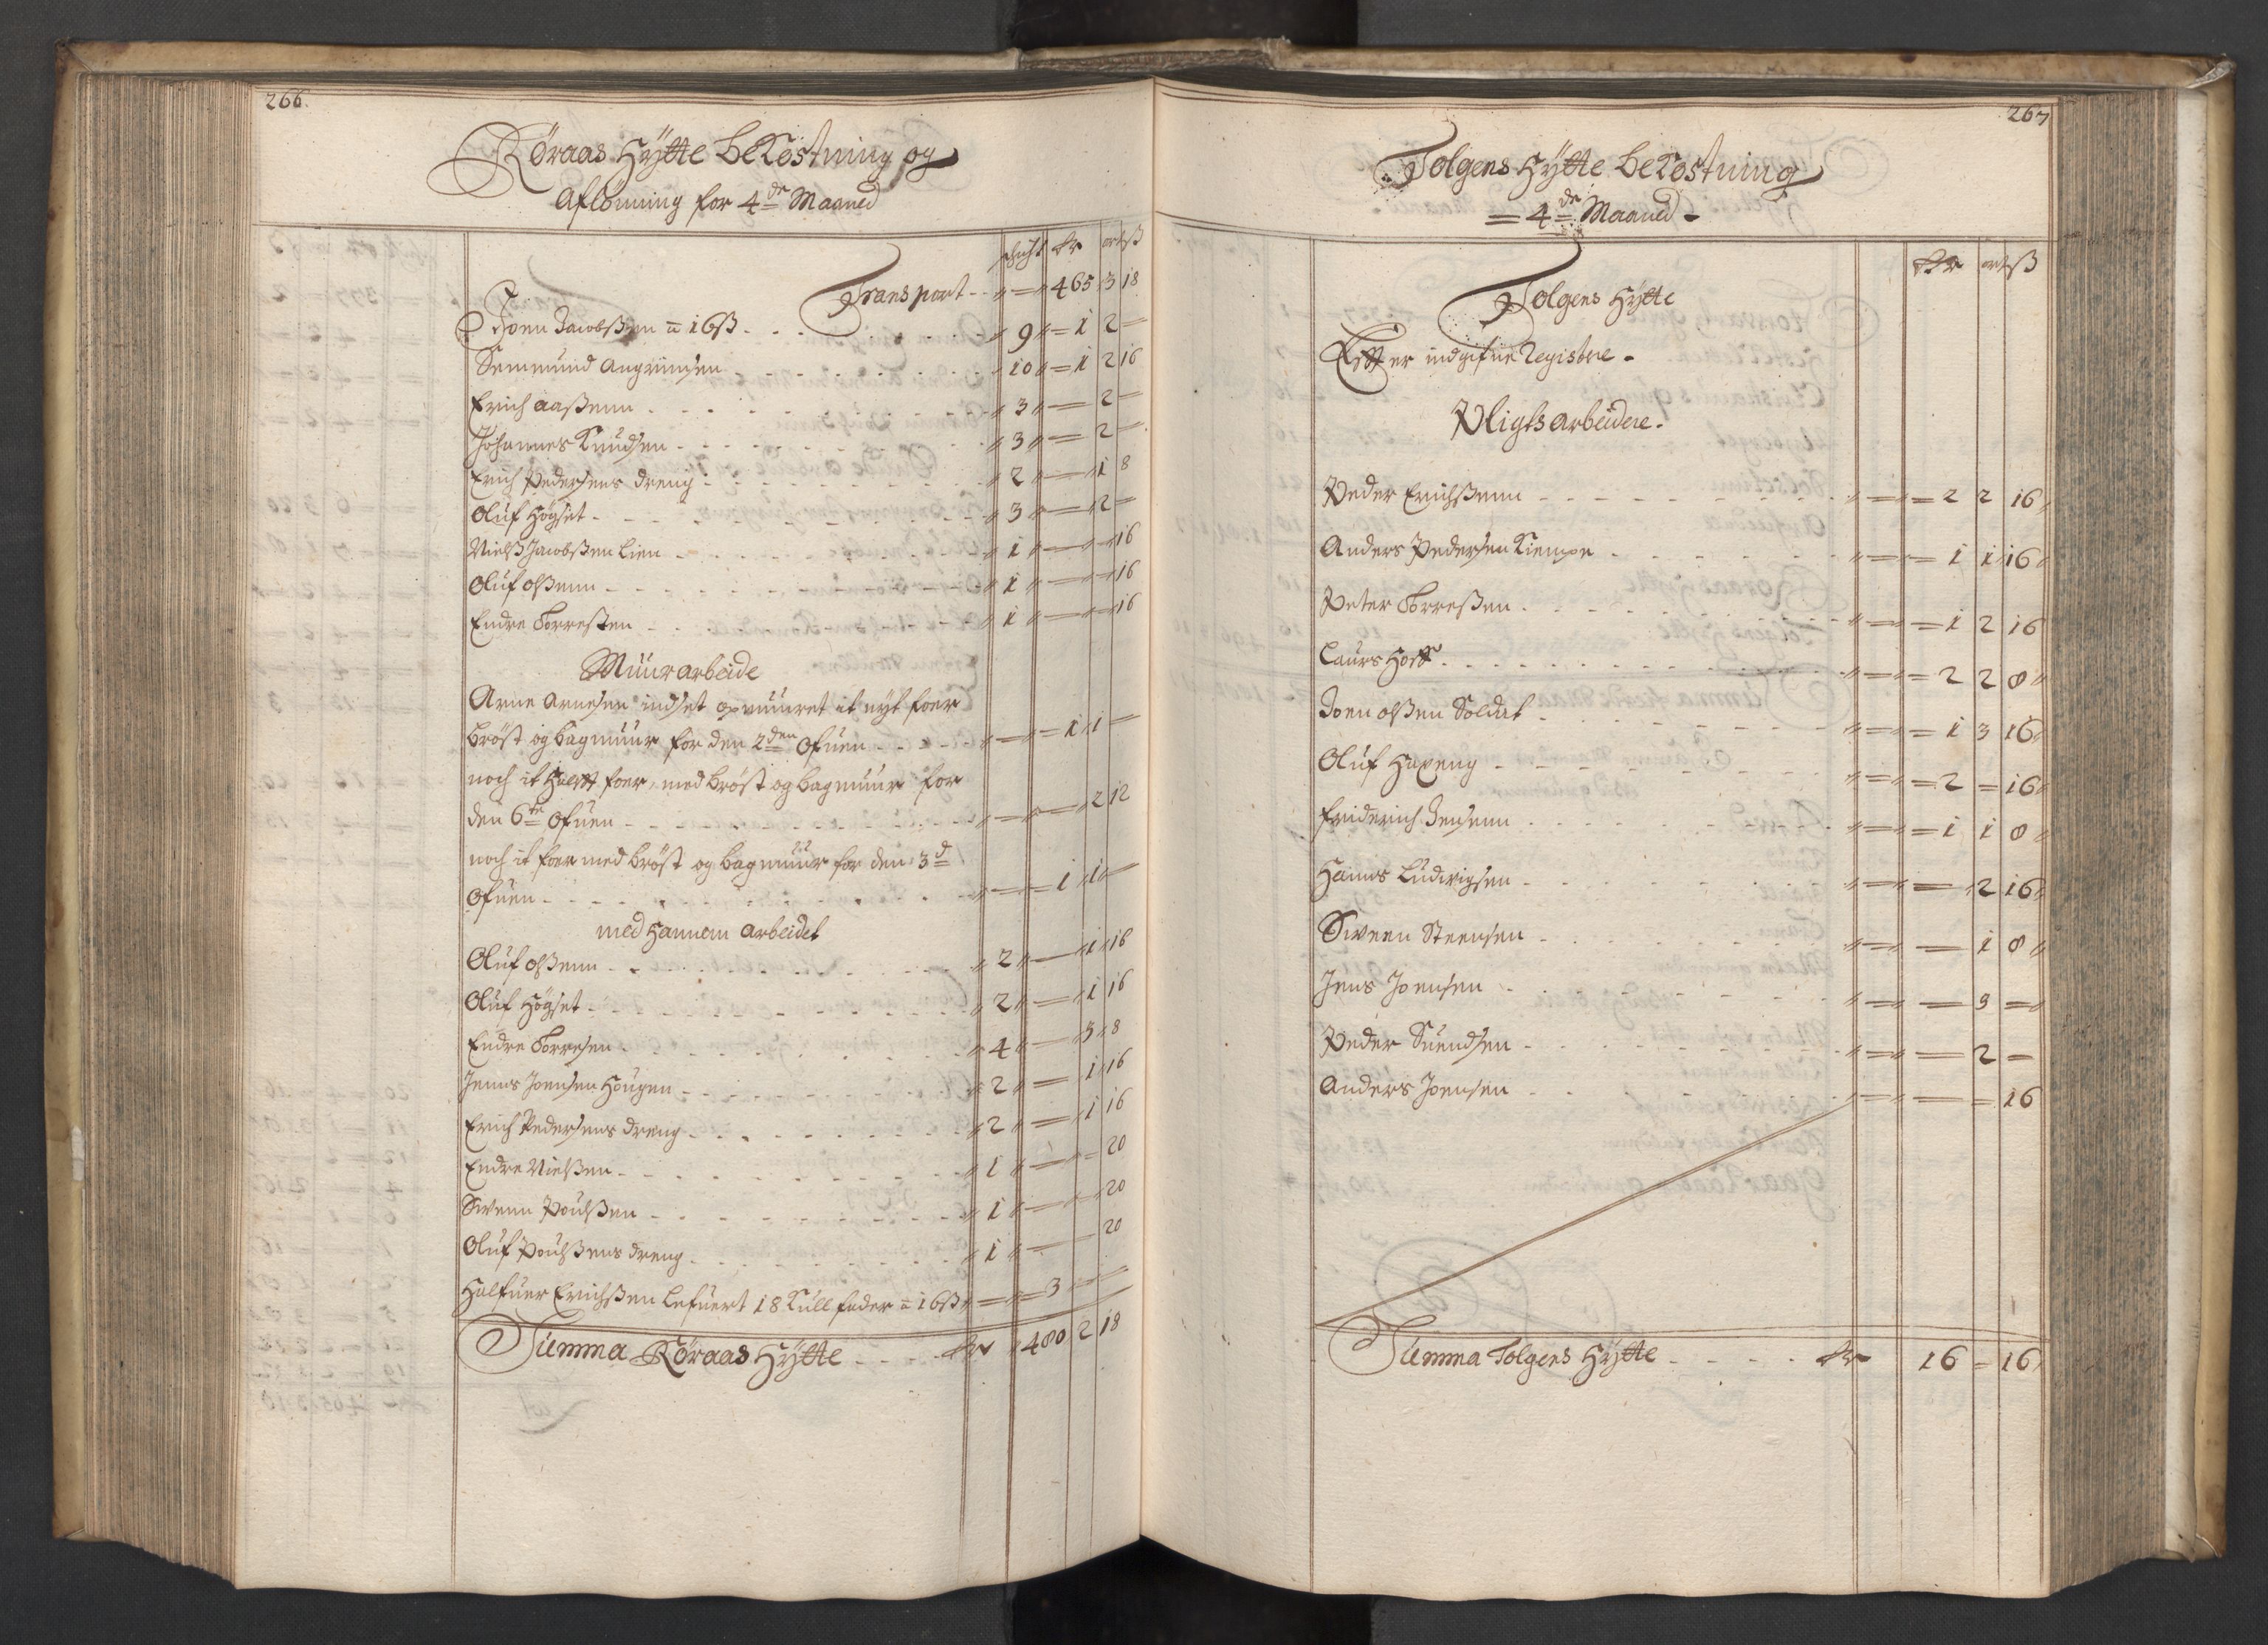 266.
Röraas Hytte bekostning og
Aflönning for 4de Maaned
schicht rdr ort ß
Transport - - 465 3 18
Joen Jacobßen a 16 ß - 9 1 2
Semmund Angrimsen - 10 1 2 16
Erich Aaßenn - 3 2
Johannes Knudsen - 3 2
Erich Pedersens dreng - 2 1 8
Oluf Högset - 3 2
Nielß Jacobßen Lien - 1 16
Oluf Olßenn - 1 16
Endre Torreßen - 1 16
Muur arbeide
Arne Arnesen indset opmuuret it nyt foer
bröst og bagmuur for den 2den Ofuen - 1 1
noch it Halft foer, med bröst og bagmuur for
den 6te Ofuen - 2 12
noch it foer med bröst og bagmuur for den 3d
Ofuen - 1 1
med Hannem arbeidet
Oluf Olßenn - 2 1 16
Oluf Högset - 2 1 16
Endre Torresen - 4 3 8
Jenns Joensen Hougen - 2 1 16
Erich Pedersens dreng - 2 1 16
Endre Nielßen - 1 20
Swenn Poulßen - 1 20
Oluf Poulßens dreng - 1 20
Halfuer Erichßen lefuert 18 Kull fader a 16 ß 3
Summa Röraas Hytte - rdr 480 2 18
267
Tolgens Hytte bekostning
4de Maaned
rdr ort ß
Tolgens Hytte
Efter indgifne Registere
Pligts arbeidere.
Peder Erichßenn - 2 2 16
Anders Pedersen Kiempe - 1 1 16
Peter Torreßen - 1 2 16
Laurs Hoff - 2 2 8
Joen Olßen Soldat - 1 3 16
Oluf Haxeng - 2 16
Friderich Jensenn - 1 1 8
Hanns Ludvigsen - 2 16
Sweenn Steensen - 1 8
Jens Joensen - 3
Peder Suendsen - 2
Anders Joensen - 16
Summa Tolgens Hytte - rdr 16 16